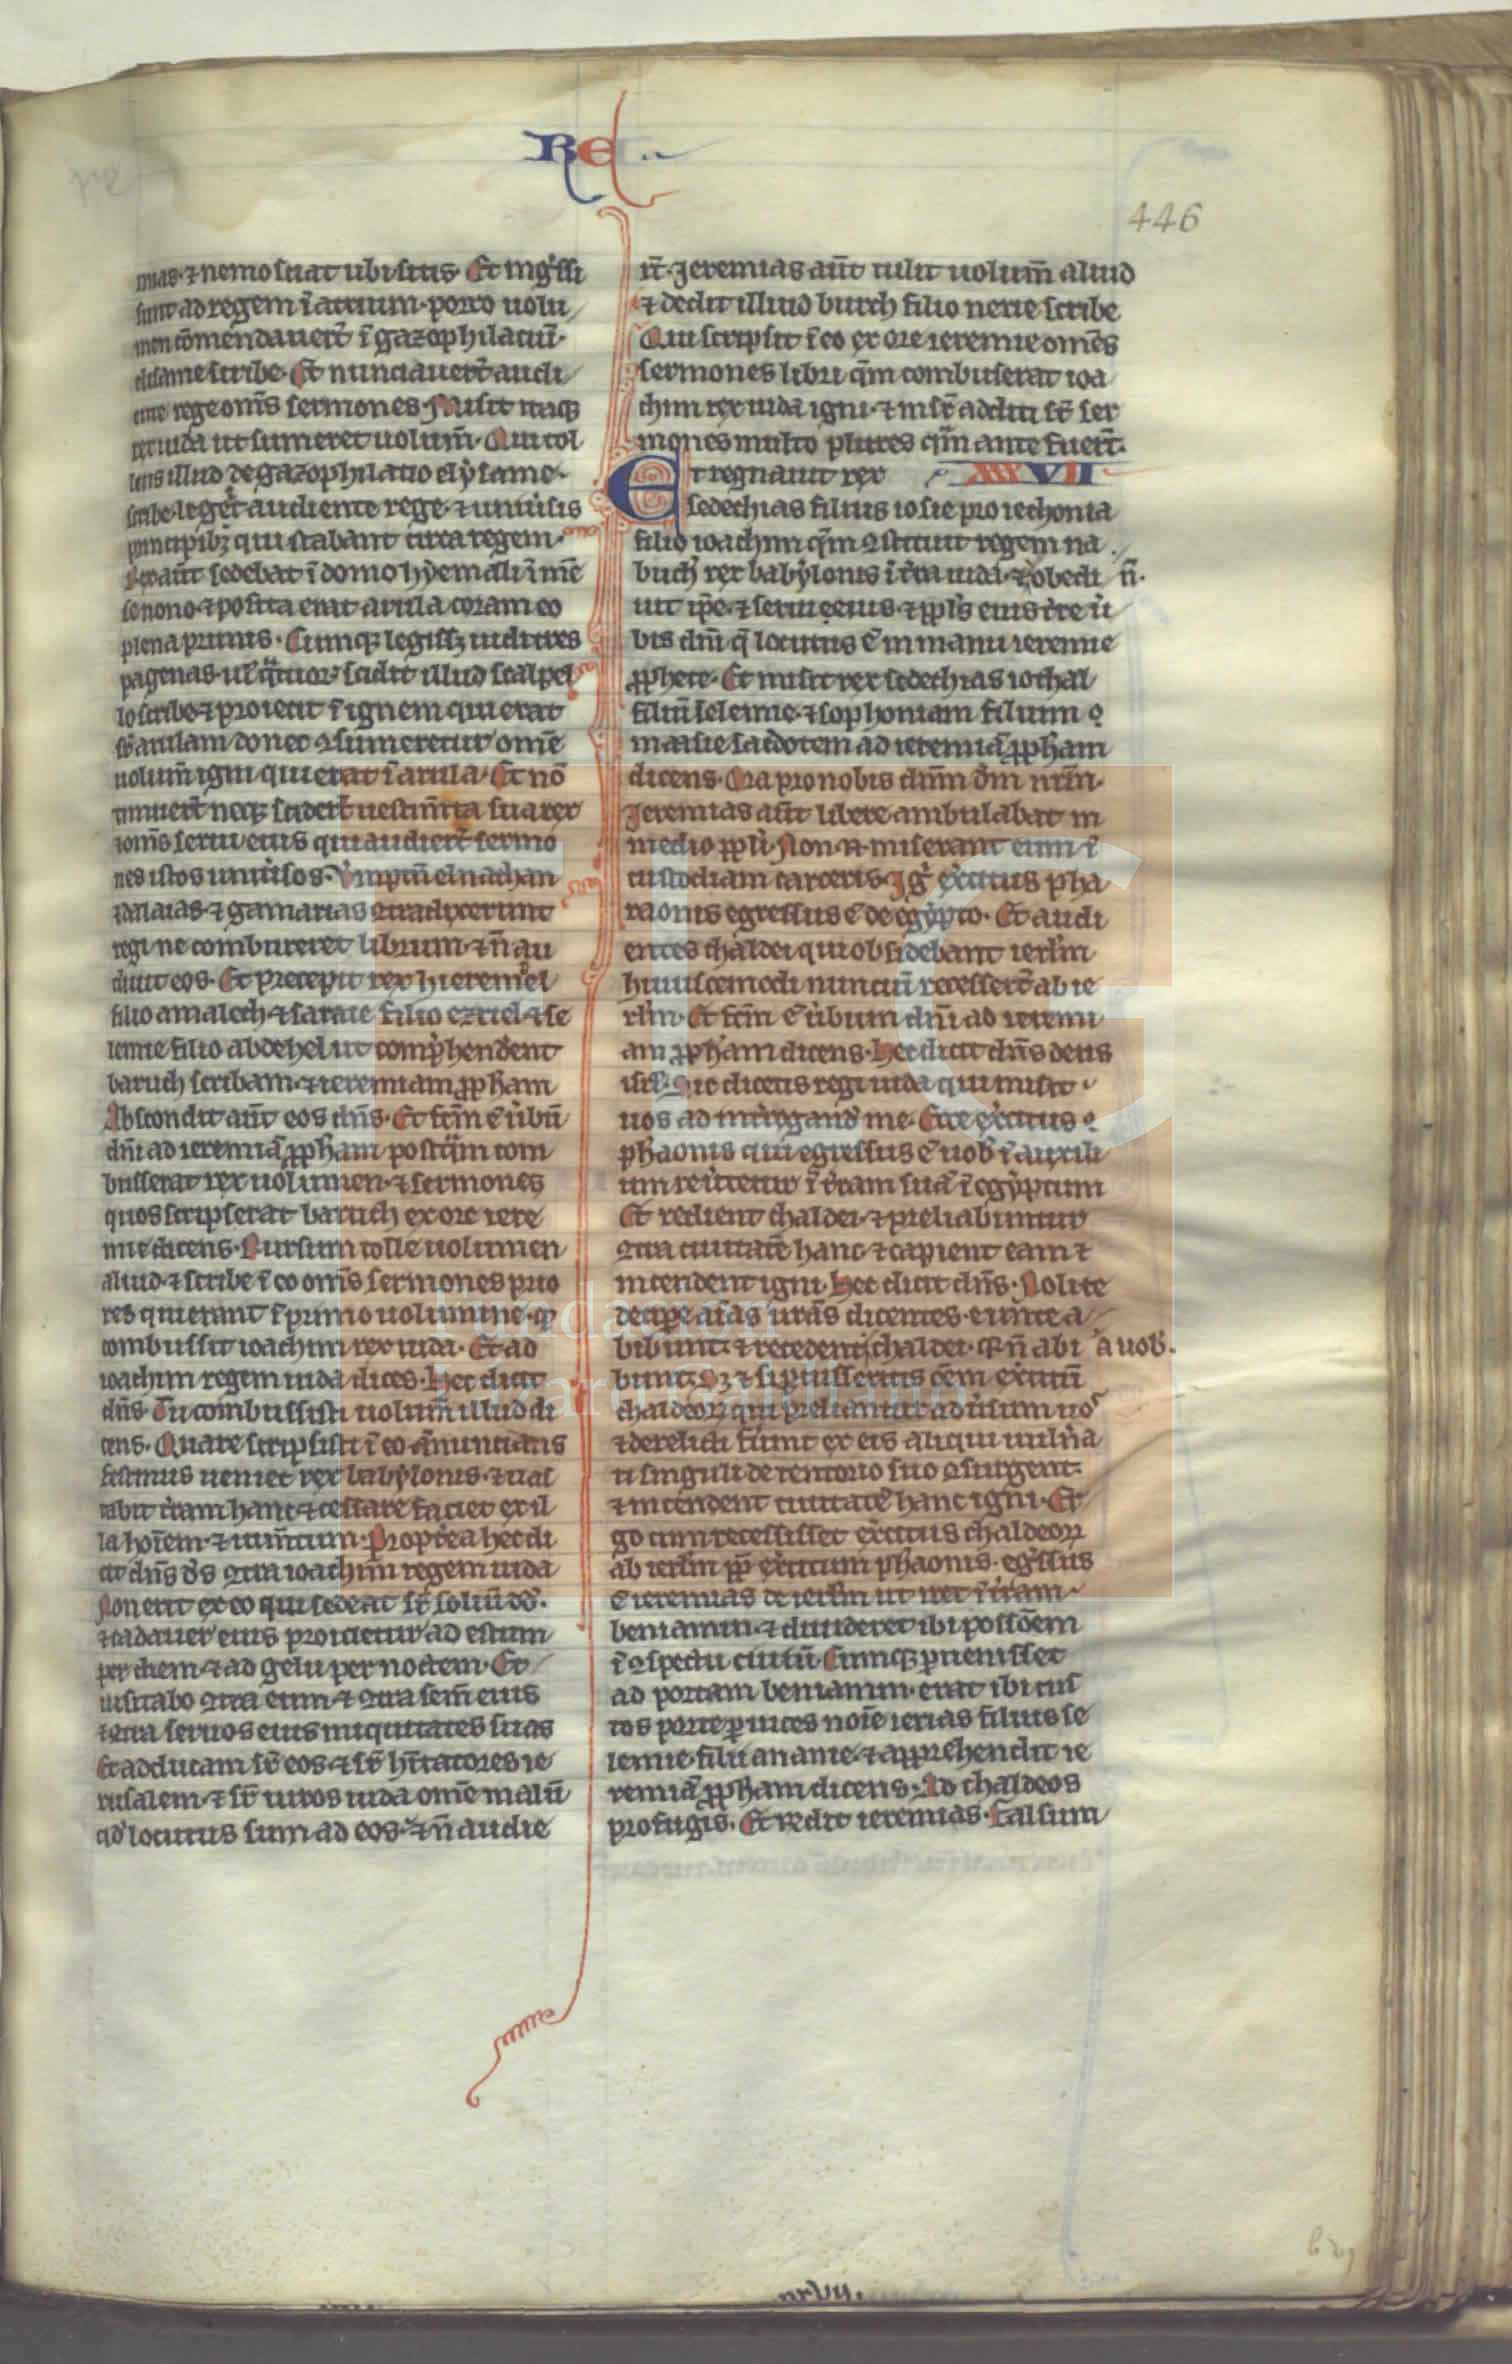 REL
446
mias ⁊ nemo sciat ubi sitis. Et ingͥssi
sunt ad regem ī atrium. porro uolu
men cōmendauerūt ī gazophilaciū
elisame scribe. Et nunciauer̄t audi
ente rege om̄s sermones. Misit itaqꝫ
rex iuda ut sumeret uolum̄. Qui tol
lens illud de gazophilatio elẏsame
scribe. leger̄t audiente rege. ⁊ uniu͛sis
principibꝫ qui stabant circa regem.
Rex aūt sedebat ī domo hẏemali ī mē
se nono. ⁊ posita erat arula coram eo
plena prunis. Cumqꝫ legissꝫ iudi tres
pagenas. ul̄ qͣtuor. scidit illud scalpel
lo scribe ⁊ proiecit ī ignem qui erat
sr̄ arulam donec ꝯsumeretur om̄e
uolum̄ igni qui erat ī arula. Et nō
timuer̄t neqꝫ scider̄t uestim̄ta sua rex
⁊ om̄s serui eius qui audier̄t sermo
nes istos uniu͛sos. Ve͛mptn̄ elnathan
⁊ dalaias. ⁊ gamarias ꝯtradixerunt
regi ne combureret librum. ⁊ n̄ au
diuit eos. Et precepit rex hieremel
filio amalech. ⁊ saraie filio ezriel. ⁊ se
lemie filio abdehel ut comp̄henderent
baruch scribam. ⁊ ieremiam ꝓpham
Abscondit aūt eos dn̄s. Et fcm̄ ē u͛bū
dn̄i ad ieremiā ꝓpham postqͣm com
busserat rex uolumen. ⁊ sermones
quos scripserat baruch ex ore iere
mie dicens. Rursum tolle uolumen
aliud. ⁊ scribe ī eo om̄s sermones prio
res qui erant ī primo uolumine. qͦ
combussit ioachim rex iuda. Et ad
ioachim regem iuda dices. Hec dicit
dn̄s. Tu combussisti uolum̄ illud di
cens. Quare scripsisti ī eo an̄nuncians
festinus ueniet rex babẏlonis. ⁊ uas
tabit t͛ram hanc ⁊ cessare faciet ex il
la hoīem. ⁊ ium̄tum. Propt͛ea hec di
cit dn̄s d͛s ꝯtra ioachim regem iuda
Non erit ex eo qui sedeat sr̄ soliū dd̄.
⁊ cadauer eius proicietur ad estum
per diem ⁊ ad gelu per noctem. Et
uisitabo ꝯtra eum. ⁊ ꝯtra sem̄ eius
⁊ ꝯtra seruos eius iniquitates suas
Et adducam sr̄ eos. ⁊ sr̄ hītatores ie
rusalem. ⁊ sr̄ uiros iuda om̄e malū
qd̓ locutus sum ad eos. ⁊ n̄ audie
rt̄. Jeremias aūt tulit uolum̄ aliud
⁊ dedit illud buruch filio nerie scribe
Qui scripsit ī eo ex ore ieremie om̄es
sermones libri qͣm combuserat ioa
chim rex iuda igni. ⁊ insr̄ additi st̄ ser
mones multo plures qͣm ante fuer̄t.
Et regnauit rex XXXVII
sedechias filius iosie pro iechonia
filio ioachim qͣm ꝯstituit regem na
buch̓ rex babẏlonis ī t͛ra iuda. ⁊ obedi n̄.
uit ip̄e. ⁊ serui eius. ⁊ ppl̄s eius t͛re u͛
bis dn̄i q̄ locutus ē in manu ieremie
ꝓphete. Et misit rex sedechias iochal
filiū selemie. ⁊ sophoniam filium
maasie sacͥdotem ad ieremiā ꝓpham
dicens. Ora pro nobis dn̄m dm̄ nr̄m.
Jeremias aūt libere ambulabat in
medio ppl̄i. Non .n. miserant eum ī
custodiam carceris. Jgͥ ex͛citus pha
raonis egressus ē de egẏpto. Et audi
entes chaldei qui obsidebant ierl̄m
huiuscemodi nunciū recesser̄t ab ie
rl̄m. Et fcm̄ ē u͛bum dn̄i ad ieremi
am ꝓpham dicens. Hec dicit dn̄s deus
isrl̄. Sic dicetis regi iuda qui misit
uos ad int͛rogand̓ me. Ecce ex͛citus
ph̄aonis qui egressus ē uob̓ ī auxili
um reu͛tetur ī t͛ram suā ī egẏptum
Et redient chaldei. ⁊ preliabuntur
ꝯtra ciuitatē hanc ⁊ capient eam ⁊
incendent igni. Hec dicit dn̄s. Nolite
decipe͛ aīas ur̄as dicentes. eunte a
bibunt. ⁊ recedent chaldei. qꝫ n̄ abi a uob̓.
bunt. Sꝫ ⁊ si p͛cusseritis om̄em ex͛citū
chaldeoꝝ qui preliantur adu͛sum uos
⁊ derelicti fu͛int ex eis aliqui uuln͛a
ti singuli de tentorio suo ꝯsurgent.
⁊ incendent ciuitatē hanc igni. Er
go cum recessisset ex͛citus chaldeoꝝ
ab ierl̄m pp̄ ex͛citum ph̄aonis. egͥssus
ē ieremias de ierl̄m ut iret ī t͛ram
beniamin. ⁊ diuideret ibi possōem
ī ꝯspectu ciuiū. Cumqꝫ ꝑuenisset
ad portam beniamin. erat ibi cus
tos porte ꝑ uices noīe ierias filius se
lemie filii ananie. ⁊ apprehendit ie
remiā ꝓpham dicens. Ad chaldeos
profugis. Et r̄dit ieremias. Falsum